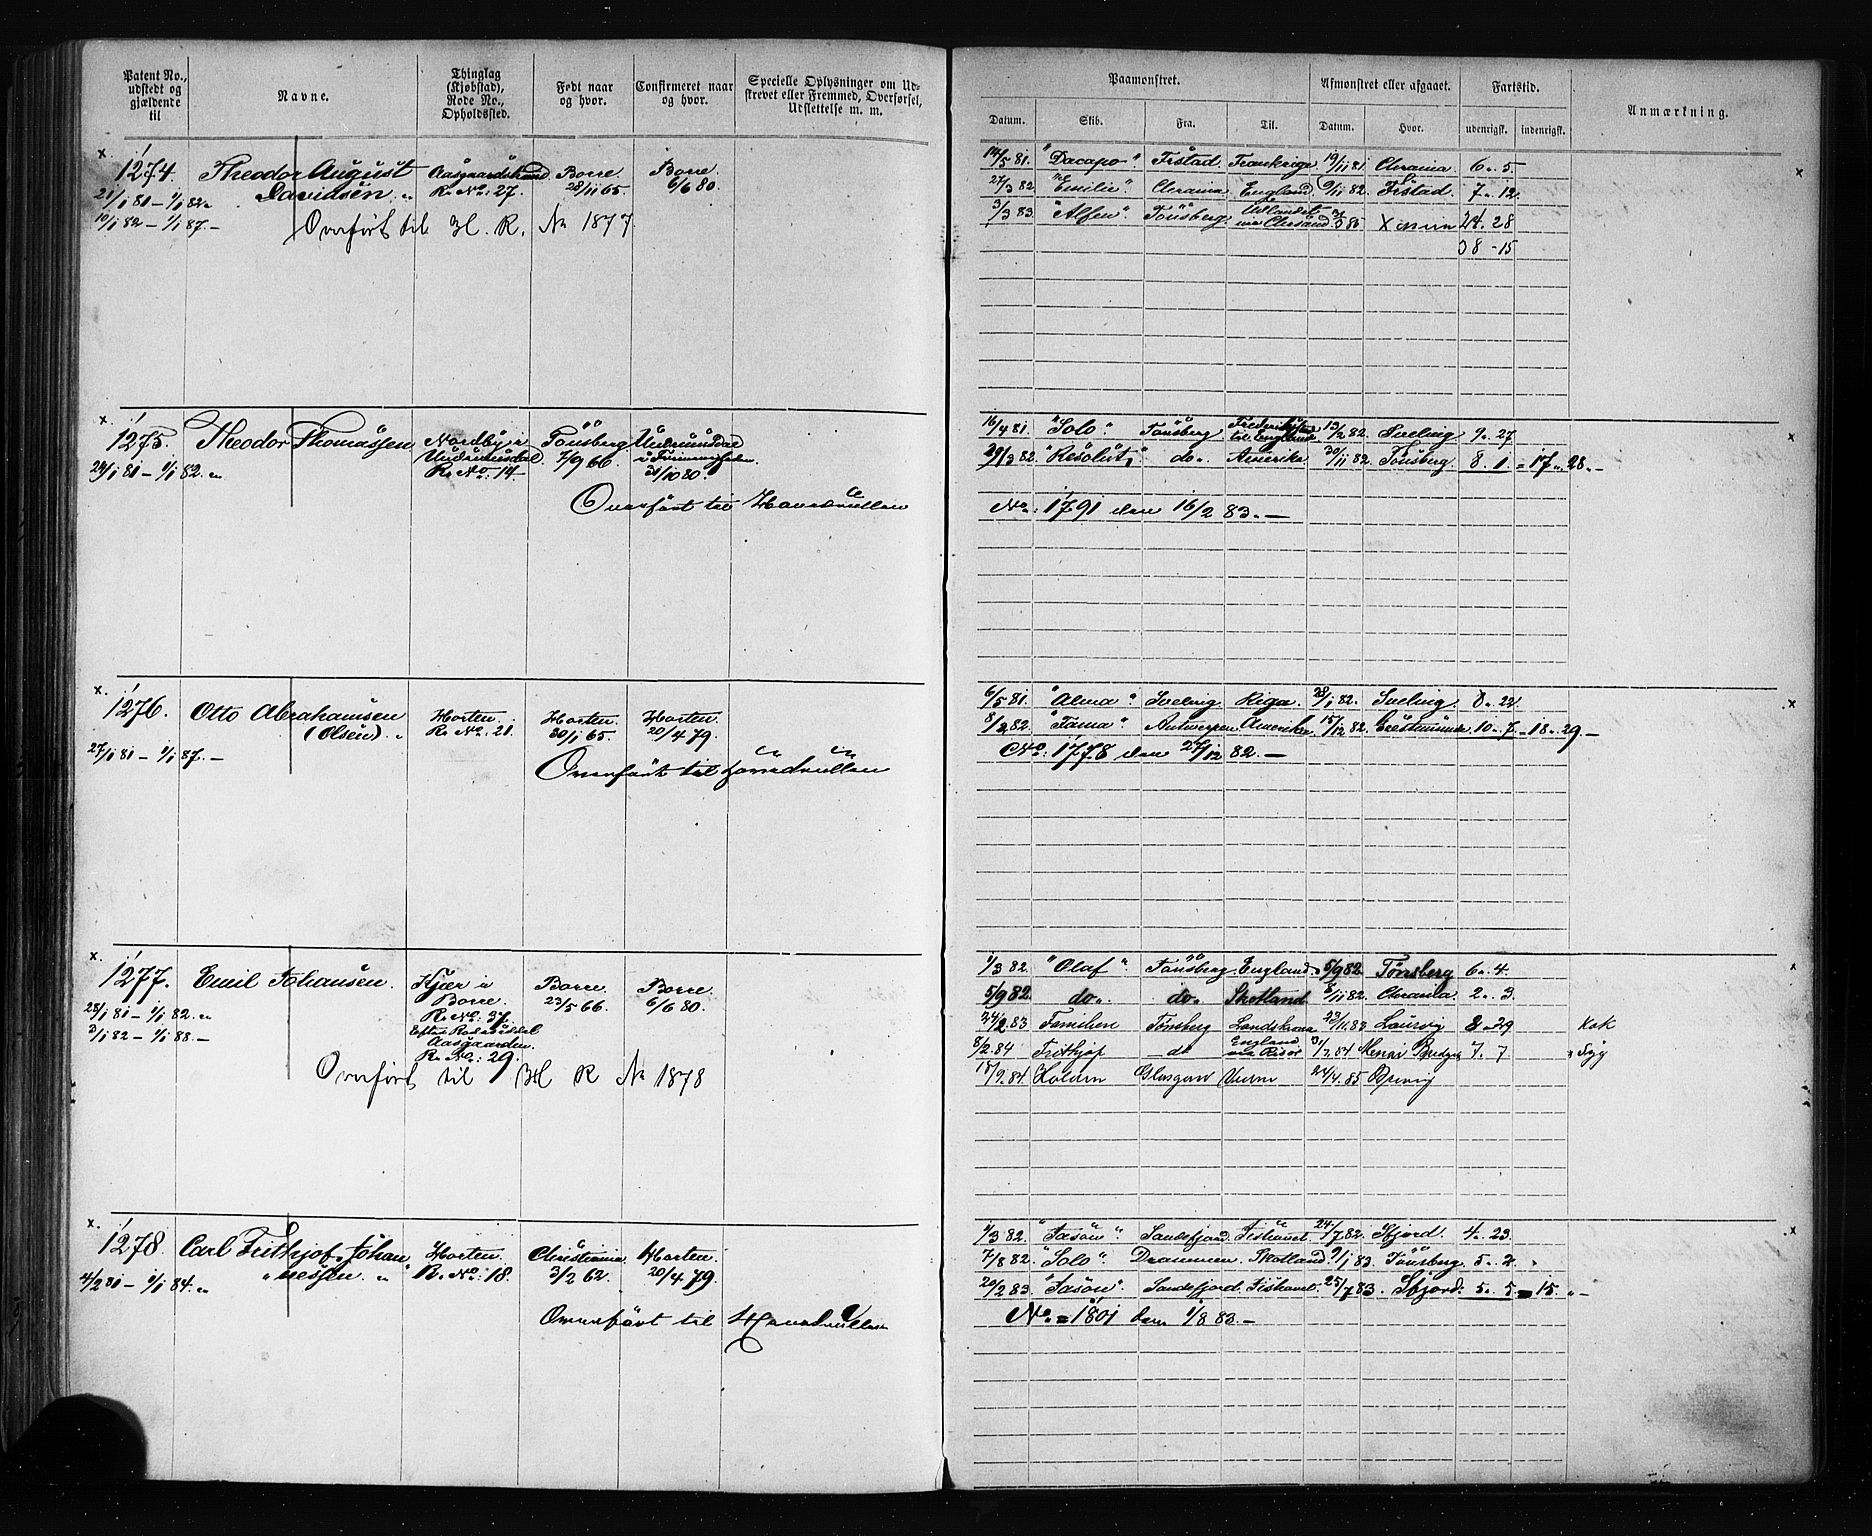 Patent No., udstedt og gjældende til
Navne.
Thinglag (Kjøbstad), Rode No., Opholdssted.
Født naar og hvor.
Confirmeret naar og hvor.
Specielle Oplysninger om Udskrevet eller Fremmed, Overførsel, Udslettelse m. m.
Paamønstret.
Afmønstret eller afgaaet.
Fartstid.
Anmærkning.
Datum. Skib. Fra. Til. Datum. Hvor. udenrigsk. indenrigsk.
x.
1274. Theodor August Aasgaardstrand Borre Borre
21/1 81 – 1/1 82 Davidsen R. No: 27. 28/11 65 6/6 80.
10/1 82 – 1/1 87. – Overført til H. R. No 1877
14/5 81. "Dacapo" Frstad. Frankrige 19/11 81 Chrania 6 " 5. x
27/3 82 "Emilie" Chrania England 9/1 82. Frstad. 7 " 12.
3/3 83. "Alfen". Tönsberg. Udlandet
via Chrsand 24 " 28
38 – 15
x.
1275. Theodor Thomassen Nordby i Tönsberg Undrumsdal
24/1 81 – 1/1 82. " Undrumsdal. 7/9 66.
R. No: 14 31/10 80.
Overført til Hovedrullen
16/4 81. "Solo" Tönsberg til England 13/2 82. Svelvig 9 " 27 x
29/3 82. "Resolut" do. Amerika 20/11 82. Tönsberg. 8. 1 = 17 " 28 " –
No: 1791 den 16/2 83. –
x.
1276. Otto Abrahamsen Horten. Horten. Horten.
(Olsen) " R. No: 21. 30/1 65. 20/4 79.
27/1 81 – 1/1 87. –
Overført til Hovedrullen
6/5 81. "Alma" Svelvig Riga. 28/1 82. Svelvig 8 " 22 x
8/2 82. "Fama" Antwerpen Amerika 15/12 82. 10 " 7 = 18 " 29 –
No: 1778 den 27/12 82. –
x.
1277. Emil Johansen. Kjær i Borre. Borre.
28/1 81 – 1/1 82. " Borre. 23/5 66. 6/6 80.
3/1 82 – 1/1 88. – R. No: 37.
Aasgaarden.
R. No: 29.
Overført til H R No 1878
1/3 82. "Olaf" Tönsberg England 5/9 82. Tønsberg 6 " 4. x
5/9 82. do. do. Skotland 8/11 82. Chrania. 2 " 3.
24/2 83 Familien Tønsberg Landskrona 23/11 83 Laurvig 8 " 29 Kok
8/2 84 Frithjof do England
via Risör 7. 7
15/9 84 Holden Glasgow 24/4 85 Brevig
x.
1278. Carl Frithjof Johan Horten. Christiania Horten.
4/2 81 – 1/1 84. " nessen " R. No: 18. 3/2 62. 20/4 79.
Overført til Hovedrullen
1/3 82. "Jasön" Sandefjord. Fiskavet. 24/7 82. Sfjord. 4 " 23. x
7/8 82. "Solo" Drammen. Skotland 9/1 83. Tönsberg. 5 " 2.
20/2 83 "Jasön" Sandefjord. Fiskavet. 25/7 83. Sfjord. 5 " 5 = 15 " –
No. = 1801 den 1/8 83. –